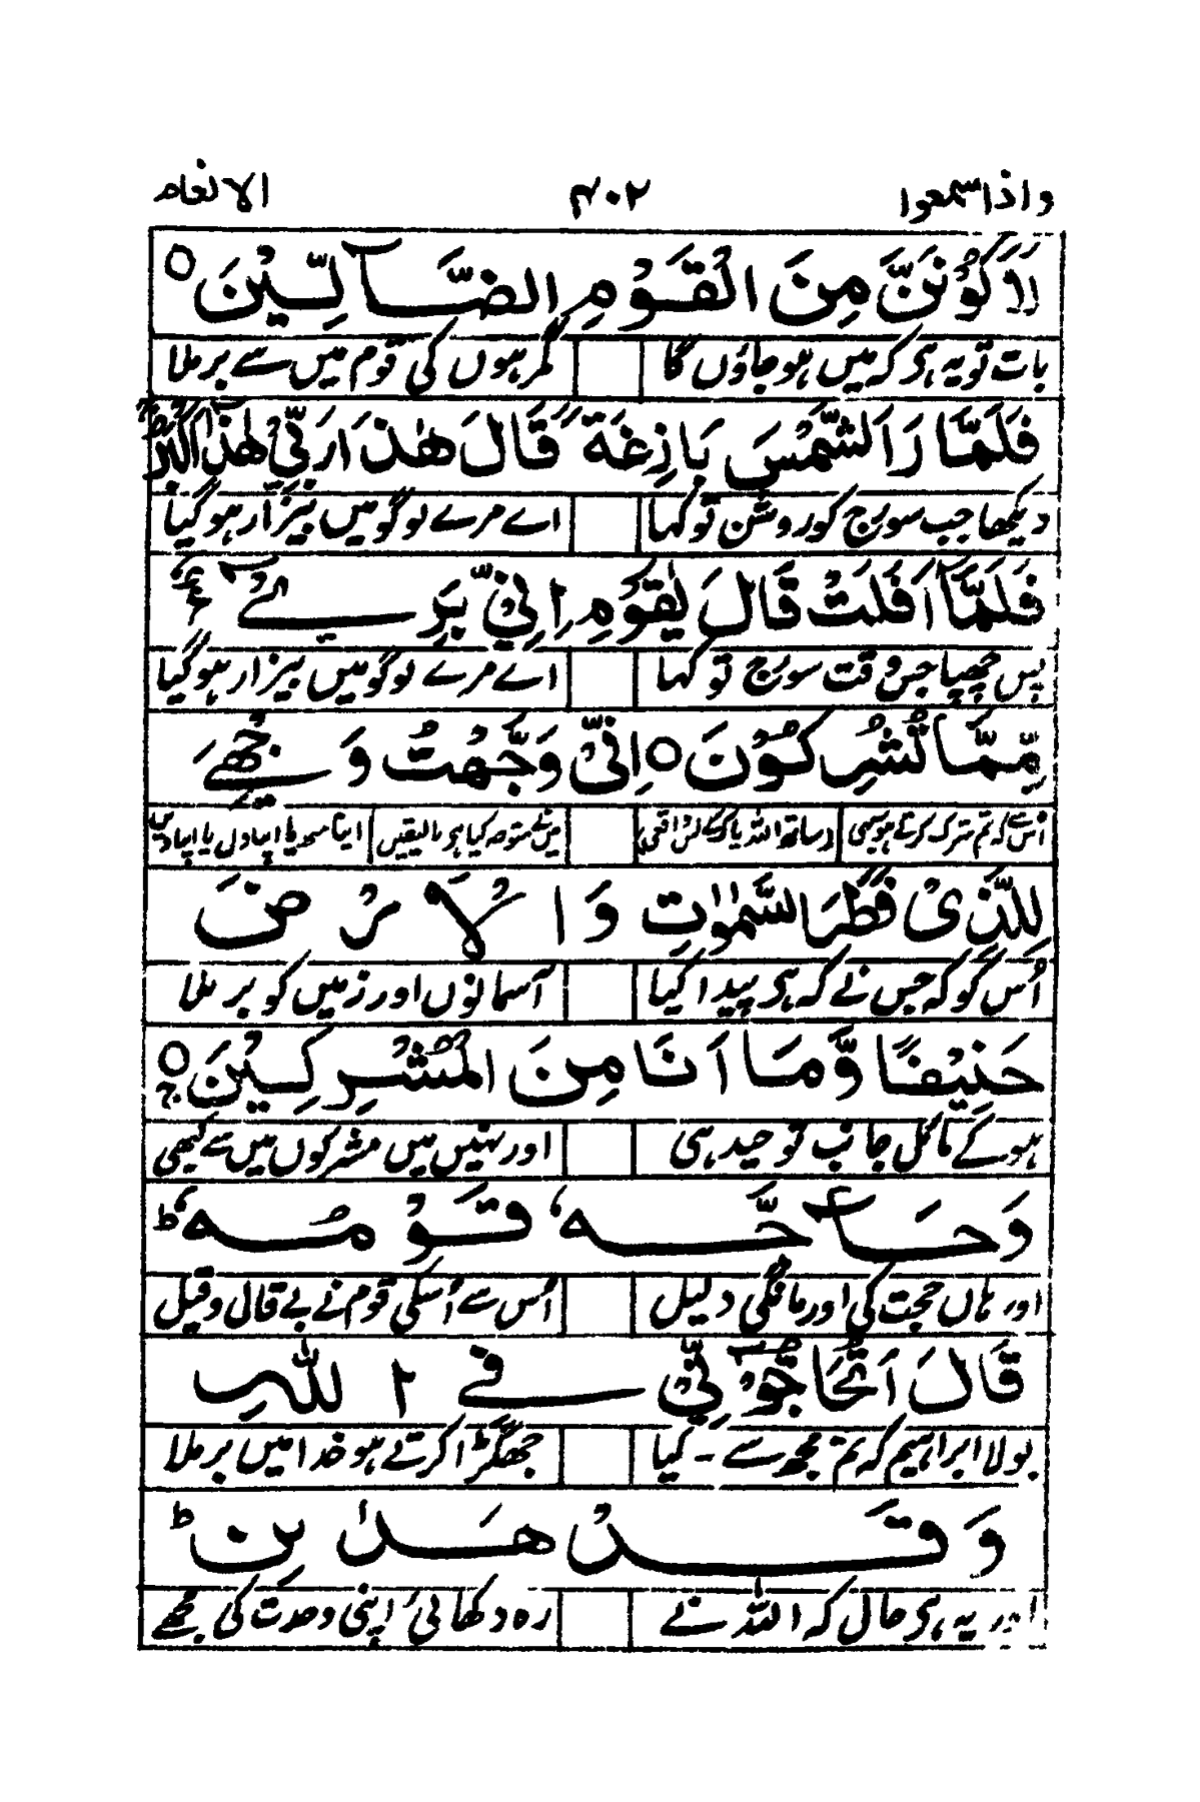 واذاسمعوا ۴۰۲ الانعام
لَاَكُوْنَنَّ مِنَ الْقَوْمِ الضَّآلِّيْنَ ○
بات تو یہ ہی کہ میں ہو جاؤں گا گمرہوں کی قوم میں سے برملا
فَلَمَّا رَاَالشَّمْسَ بَازِغَةً قَالَ هٰذَا رَبِّيْ هٰذَا اَكْبَرُ
دیکھا جب سورج کو روشن تو کہا اے مرے لوگو میں بیزار ہو گیا
فَلَمَّآ اَفَلَتْ قَالَ يٰقَوْمِ اِنِّيْ بَرِيْٓءٌ
پس چھپا جس وقت سورج تو کہا اے مرے لوگو میں بیزار ہو گیا
مِّمَّا تُشْرِكُوْنَ ○ اِنِّيْ وَجَّهْتُ وَجْهِيَ
اُس سے کہ تم شرک کرتے ہو سبھی ساتھ اللہ پاک کے میں نے متوجہ کیا ہی بالیقیں اپنا منھ یا اپنا دل یا اپنا دیں
لِلَّذِيْ فَطَرَ السَّمٰوٰتِ وَالْاَرْضَ
اُس کو کہ جس نے کہ ہی پیدا کیا آسمانوں اور زمیں کو برملا
حَنِيْفًا وَّمَا اَنَا مِنَ الْمُشْرِكِيْنَ ○ ج
ہو کے مائل جانب توحید ہی اور نہیں میں مشرکوں میں سے کبھی
وَحَآجَّهٗ قَوْمُهٗ ط
اور ہاں حجت کی اور مانگی دلیل اُس سے اُسکی قوم نے بے قال و قیل
قَالَ اَتُحَآجُّوْٓنِّيْ فِي اللّٰهِ
بولا ابراہیم کہ تم مجھ سے - کیا جھگڑا کرتے ہو خدا میں برملا
وَقَدْ هَدٰىنِ ط
اور یہ ہی حال کہ اللہ نے رہ دکھائی اپنی وحدت کی مجھے